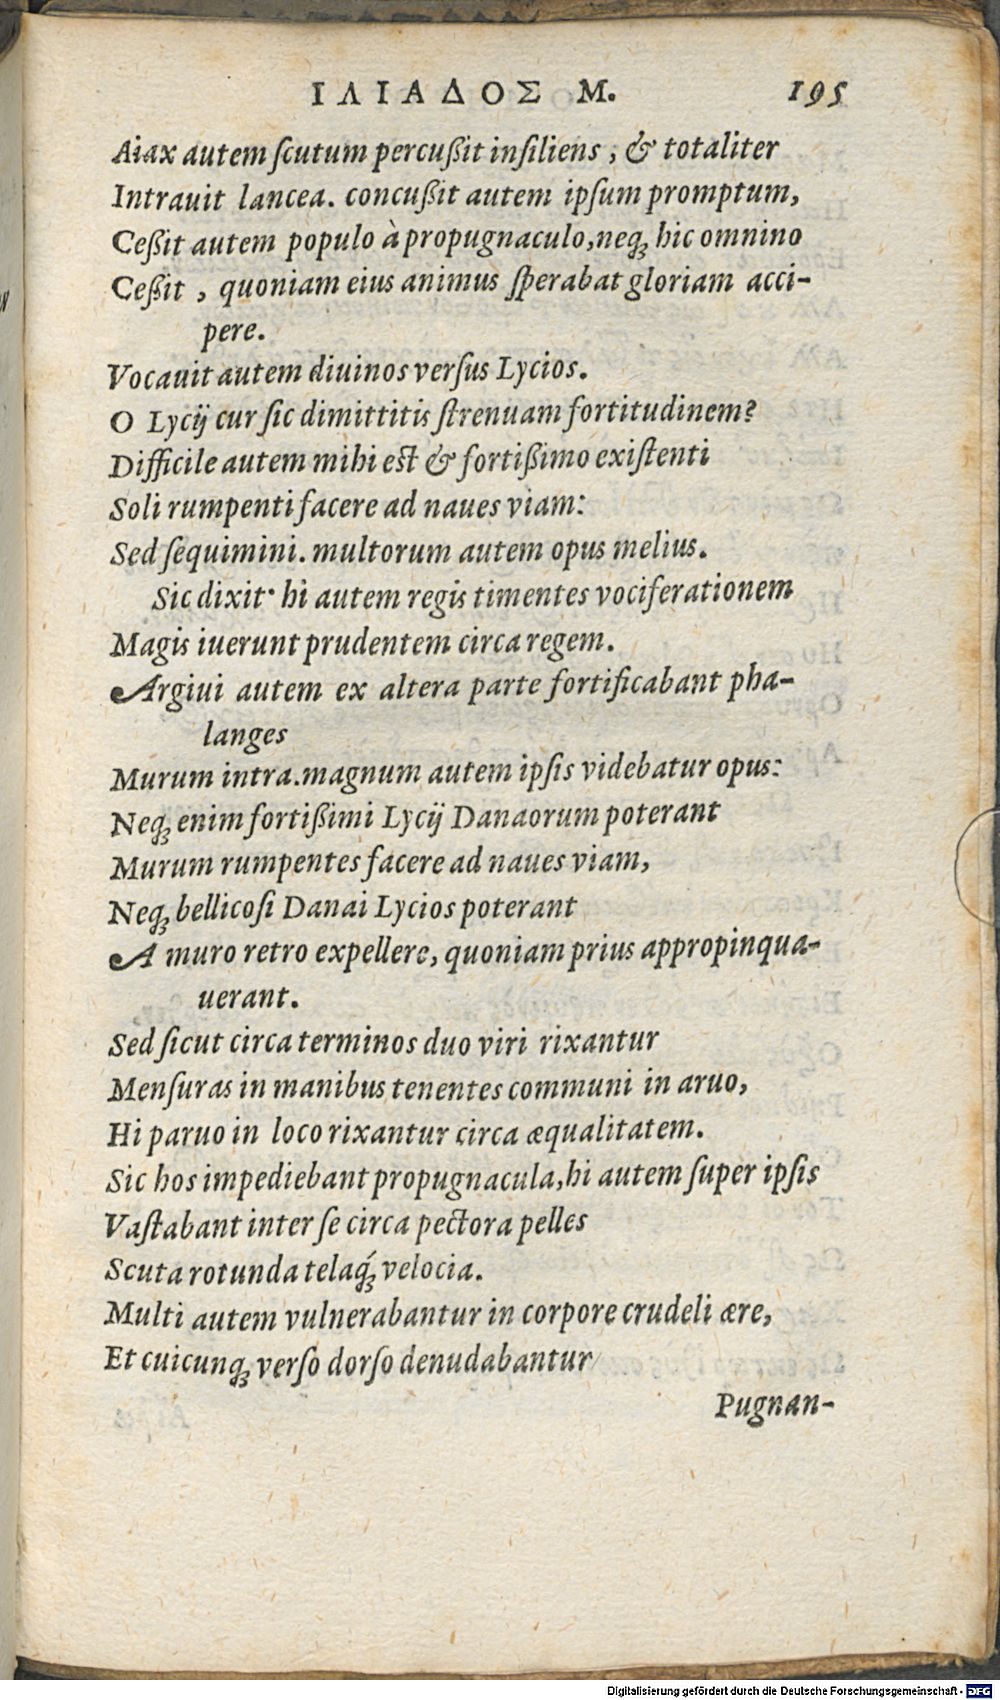 ΙΛΙΑΔΟΣ Μ. 195
Aiax autem ſcutum percußit inſiliens, & totaliter
Intrauit lancea. concußit autem ipſum promptum,
Ceßit autem populo à propugnaculo, neq; hic omnino
Ceßit, quoniam eius animus ſperabat gloriam acci-
pere.
Vocauit autem diuinos verſus Lycios.
O Lycij cur ſic dimittitis ſtrenuam fortitudinem?
Difficile autem mihi eſt & fortißimo exiſtenti
Soli rumpenti facere ad naues viam:
Sed ſequimini. multorum autem opus melius.
Sic dixit· hi autem regis timentes vociferationem
Magis iuerunt prudentem circa regem.
Argiui autem ex altera parte fortificabant pha-
langes
Murum intra. magnum autem ipſis videbatur opus:
Neq; enim fortißimi Lycij Danaorum poterant
Murum rumpentes facere ad naues viam,
Neq; bellicoſi Danai Lycios poterant
A muro retro expellere, quoniam prius appropinqua-
uerant.
Sed ſicut circa terminos duo viri rixantur
Menſuras in manibus tenentes communi in aruo,
Hi paruo in loco rixantur circa æqualitatem.
Sic hos impediebant propugnacula, hi autem ſuper ipſis
Vaſtabant inter ſe circa pectora pelles
Scuta rotunda telaq́; velocia.
Multi autem vulnerabantur in corpore crudeli ære,
Et cuicunq; verſo dorſo denudabantur
Pugnan-
Digitalisierung gefördert durch die Deutsche Forschungsgemeinschaft - DFG